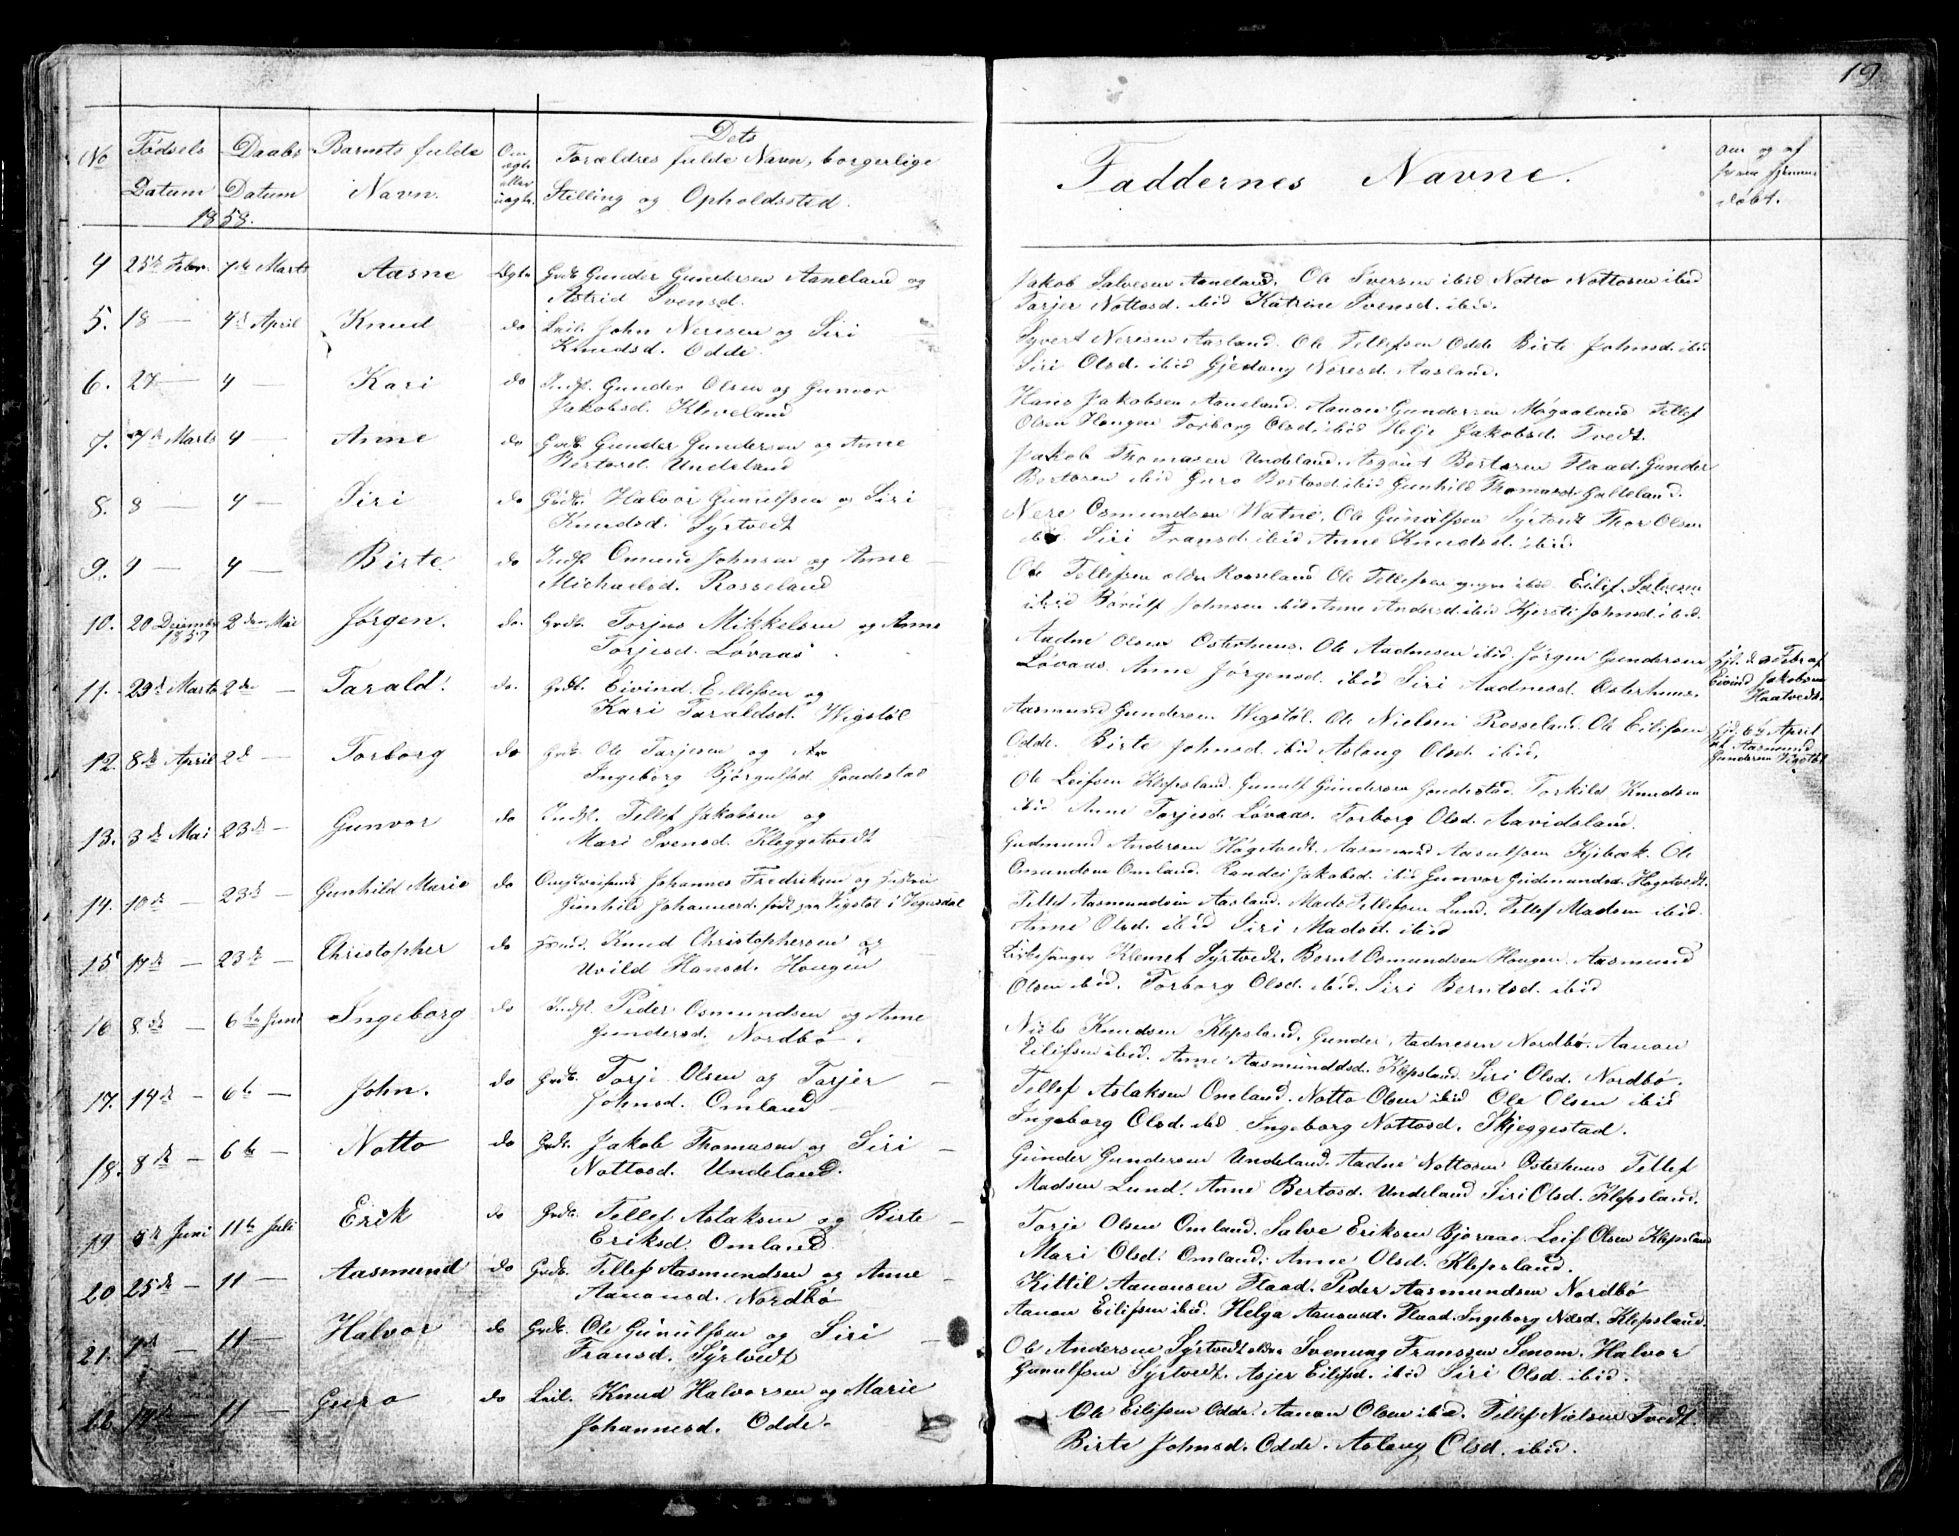 19
No Fødsels Daabs Barnets fulde Om ægte eller uægte. Dets
Datum Datum Navn. Forældres fulde Navn, borgerlige
1858. Stilling og Opholdssted.
Faddernes Navne.
om og af
hjemme
døbt.
4 25de Febr. 7de Marts Aasne Ægte Grdb. Gunder Gundersen Aaneland og
Astrid Svensd.
Jakob Salvesen Aaneland. Ole Iversen ibid Notto Nottosen ibid
Tarjer Nottosd. ibid Katrine Svensd. ibid.
5. 18 — 4de April Knud do Leil. John Neresen og Siri
Knudsd. Odde.
Syvert Neresen Aasland. Ole Tellefsen Odde Birte Johnsd. ibid
Siri Olsd. ibid Gjedany Neresd. Aasland.
6. 27 — 4 — Kari do Indst. Gunder Olsen og Gunvor
Jakobsd. Kleveland
Hans Jakobsen Aaneland. Aanon Gundersen Mogaaland Tellef
Olsen Hougen Torborg Olsd. ibid Helje Jakobsd. Tvedt.
7. 7de Marts 4 — Anne do Grdb. Gunder Gundersen og Anne
Bertosd. Undeland
Jakob Thomasen Undeland. Asgout Bertosen Flaad. Gunder
Bertosen ibid Guro Bertosd. ibid Gunhild Thomasd. Galteland.
8. 8 — 4 — Siri do Grdb. Halvor Gunulfsen og Siri
Knudsd. Syrtvedt
Nere Osmundsen Watne. Ole Gunulfsen Syrtvedt Thor Olsen
ibid Siri Fransd. ibid Anne Knudsd. ibid.
9. 9 — 4 — Birte. do Indst. Omund Johnsen og Anne —
Michaelsd. Rosseland
Ole Tellefsen ældre Rosseland Ole Tellefsen yngre ibid. Eilif Salvesen
ibid Borulf Johnsen ibid Anne Andersd. ibid Kjersti Johnsd. ibid.
10. 20 Decembr 1857 2den Mai Jørgen. do. Grdb. Torjus Mikkelsen og Anne
Torjesd. Løvaas.
Aadne Olsen Osterhuus. Ole Aadnesen ibid. Jørgen Gundersen
Løvaas. Anne Jørgensd. ibid Siri Aadnesd. Osterhuus.
Hjd. d. Febr af
Eivind Jakobsen
Haatvedt.
11. 29de Marts 2den — Tarald. do. Grdb. Eivind Eilefsen og
Kari Taraldsd. Wigstøl
Aasmund Gundersen Wigstøl. Ole Nielsen Rosseland. Ole Eilifsen
Odde. Birte Johnsd. ibid Aslaug Olsd. ibid.
Hjd. 6de April
af Aasmund
Gundersen Vigstøl
12. 8de April 2d — Torborg do Grdb. Ole Tarjesen og
Ingeborg Bjorgulfsd. Gondestad
Ole Leifsen Klepsland. Gunulf Gundersen Gondestad. Torkild Knudsen
ibid Anne Torjesd. Løvaas. Torborg Olsd. Aavidsland.
13. 3de Mai 23de — Gunvor do Indst. Tellef Jakobsen og
Mari Svensd. Kleggetvedt
Gudmund Andersen Høgetvedt. Aasmund Aasulfsen Kjibæk. Ole
Osmundsen Omland. Randei Jakobsd. ibid Gunvor Gudmundsd. Høgetvedt.
14. 10de — 23de — Gunhild Marie do Omstreifende Johannes Fredriksen og Hustru
Gunhild Johannesd. født paa Vigstøl i Vegusdal
Tellef Aasmundsen Aasland. Mads Tellefsen Lund. Tellef Madsen ibid.
Anne Olsd. ibid Siri Madsd. ibid
15 17de — 23de — Christopher do Knud Christophersen og
Uvild Hansd. Hougen
Kirkesanger Klemet Syrtvedt. Bernt Osmundsen Hougen. Aasmund
Olsen ibid. Torborg Olsd. ibid. Siri Berntsd. ibid
16 8de — 6te Juni Ingeborg do Indst. Peder Osmundsen og Anne
Gundersd. Nordbø.
Niels Knudsen Klepsland. Gunder Aadnesen Nordbø. Aanon
Eilifsen ibid. Anne Aasmundsd. Klepsland. Siri Olsd. Nordbø.
17. 14de — 6te — John. do Grdb. Torje Olsen og Tarjer —
Johnsd. Omland —
Tellef Aslaksen Omland. Notto Olsen ibid Ole Olsen ibid
Ingeborg Olsd. ibid Ingeborg Nottosd. Skjeggestad.
18. 8de — 6te — Notto do Grdb. Jakob Thomasen og Siri —
Nottosd. Undeland.
Gunder Gundersen Undeland. Aadne Nottosen Osterhuus Tellef
Madsen Lund. Anne Bertosd. Undeland Siri Olsd. Klepsland.
19 5de Juni 11te Juli Erik do Grdb. Tellef Aslaksen og Birte —
Eriksd. Omland
Torje Olsen Omland. Salve Eriksen Bjoraae. Leif Olsen Klepsland
Mari Olsd. Omland. Anne Olsd. Klepsland.
20 25de — 11 — Aasmund do Grdb. Tellef Aasmundsen og Anne —
Aanonsd. Nordbø
Kittil Aanonsen Flaad. Peder Aasmundsen Nordbø
Aanon Eilifsen ibid. Helga Aanonsd. Flaad. Ingeborg Nilsd. Klepsland.
21. — 11 — Halvor do Grdb. Ole Gunulfsen og Siri —
Fransd. Syrtvedt
Ole Andersen Syrtvedt ældre Svenung Franssen Senom. Halvor
Gunulfsen Syrtvedt. Asjer Eilifsd. ibid Siri Olsd. ibid.
22. 14de — 11 — Guro do Leil. Knud Halvorsen og Marie
Johannesd. Odde.
Ole Eilifsen Odde. Aanon Olsen ibid. Tellef Nielsen Tvedt.
Birte Johnsd. Odde. Aslaug Olsd. ibid.